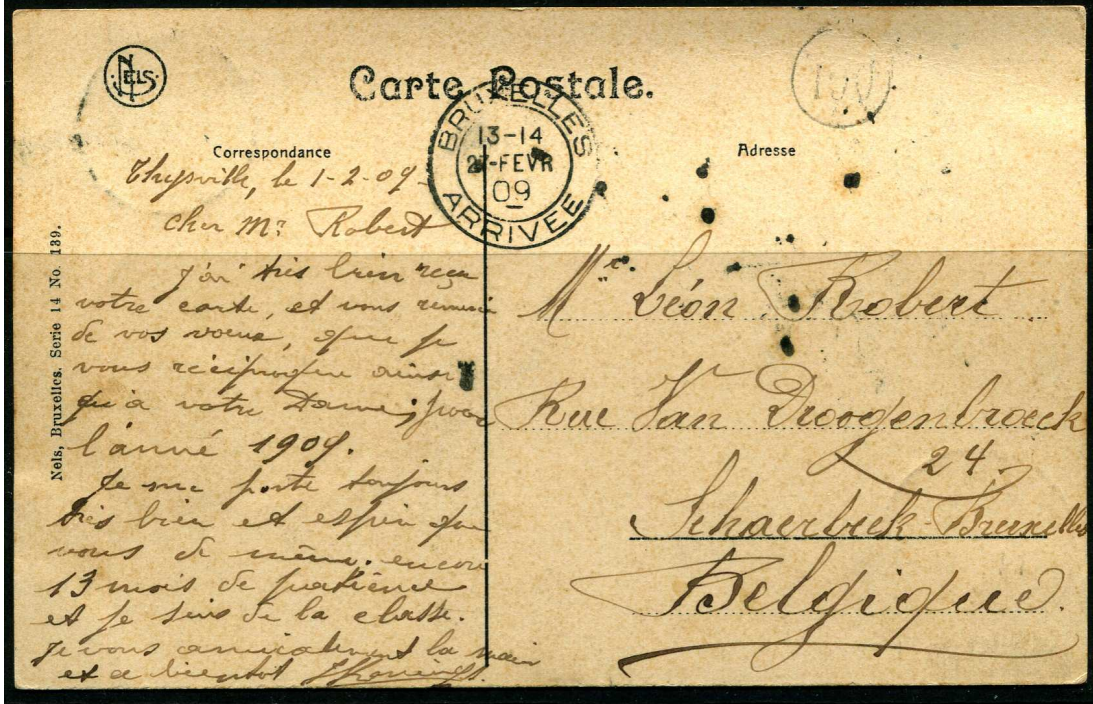 NELS
Carte Postale.
BRUXELLES
13-14
27-FEVR
09
ARRIVEE
Correspondance
Adresse
Thysville, le 1-2-09
cher Mr Robert
J'ai très bien reçu
votre carte, et vous remercie
de vos voeux, que je
vous réciproque ainsi
qu'a votre Dame, pour
l'anné 1909.
Je me porte toujours
très bien et espère que
vous de même. encore
13 mois de patience
et je suis de la classe.
Je vous amicalement la main
et a bientot
Mr. Léon Robert
Rue Van Droogenbroeck
24
Schaerbeek-Bruxelles
Belgique.
Nels, Bruxelles. Serie 14 No. 139.